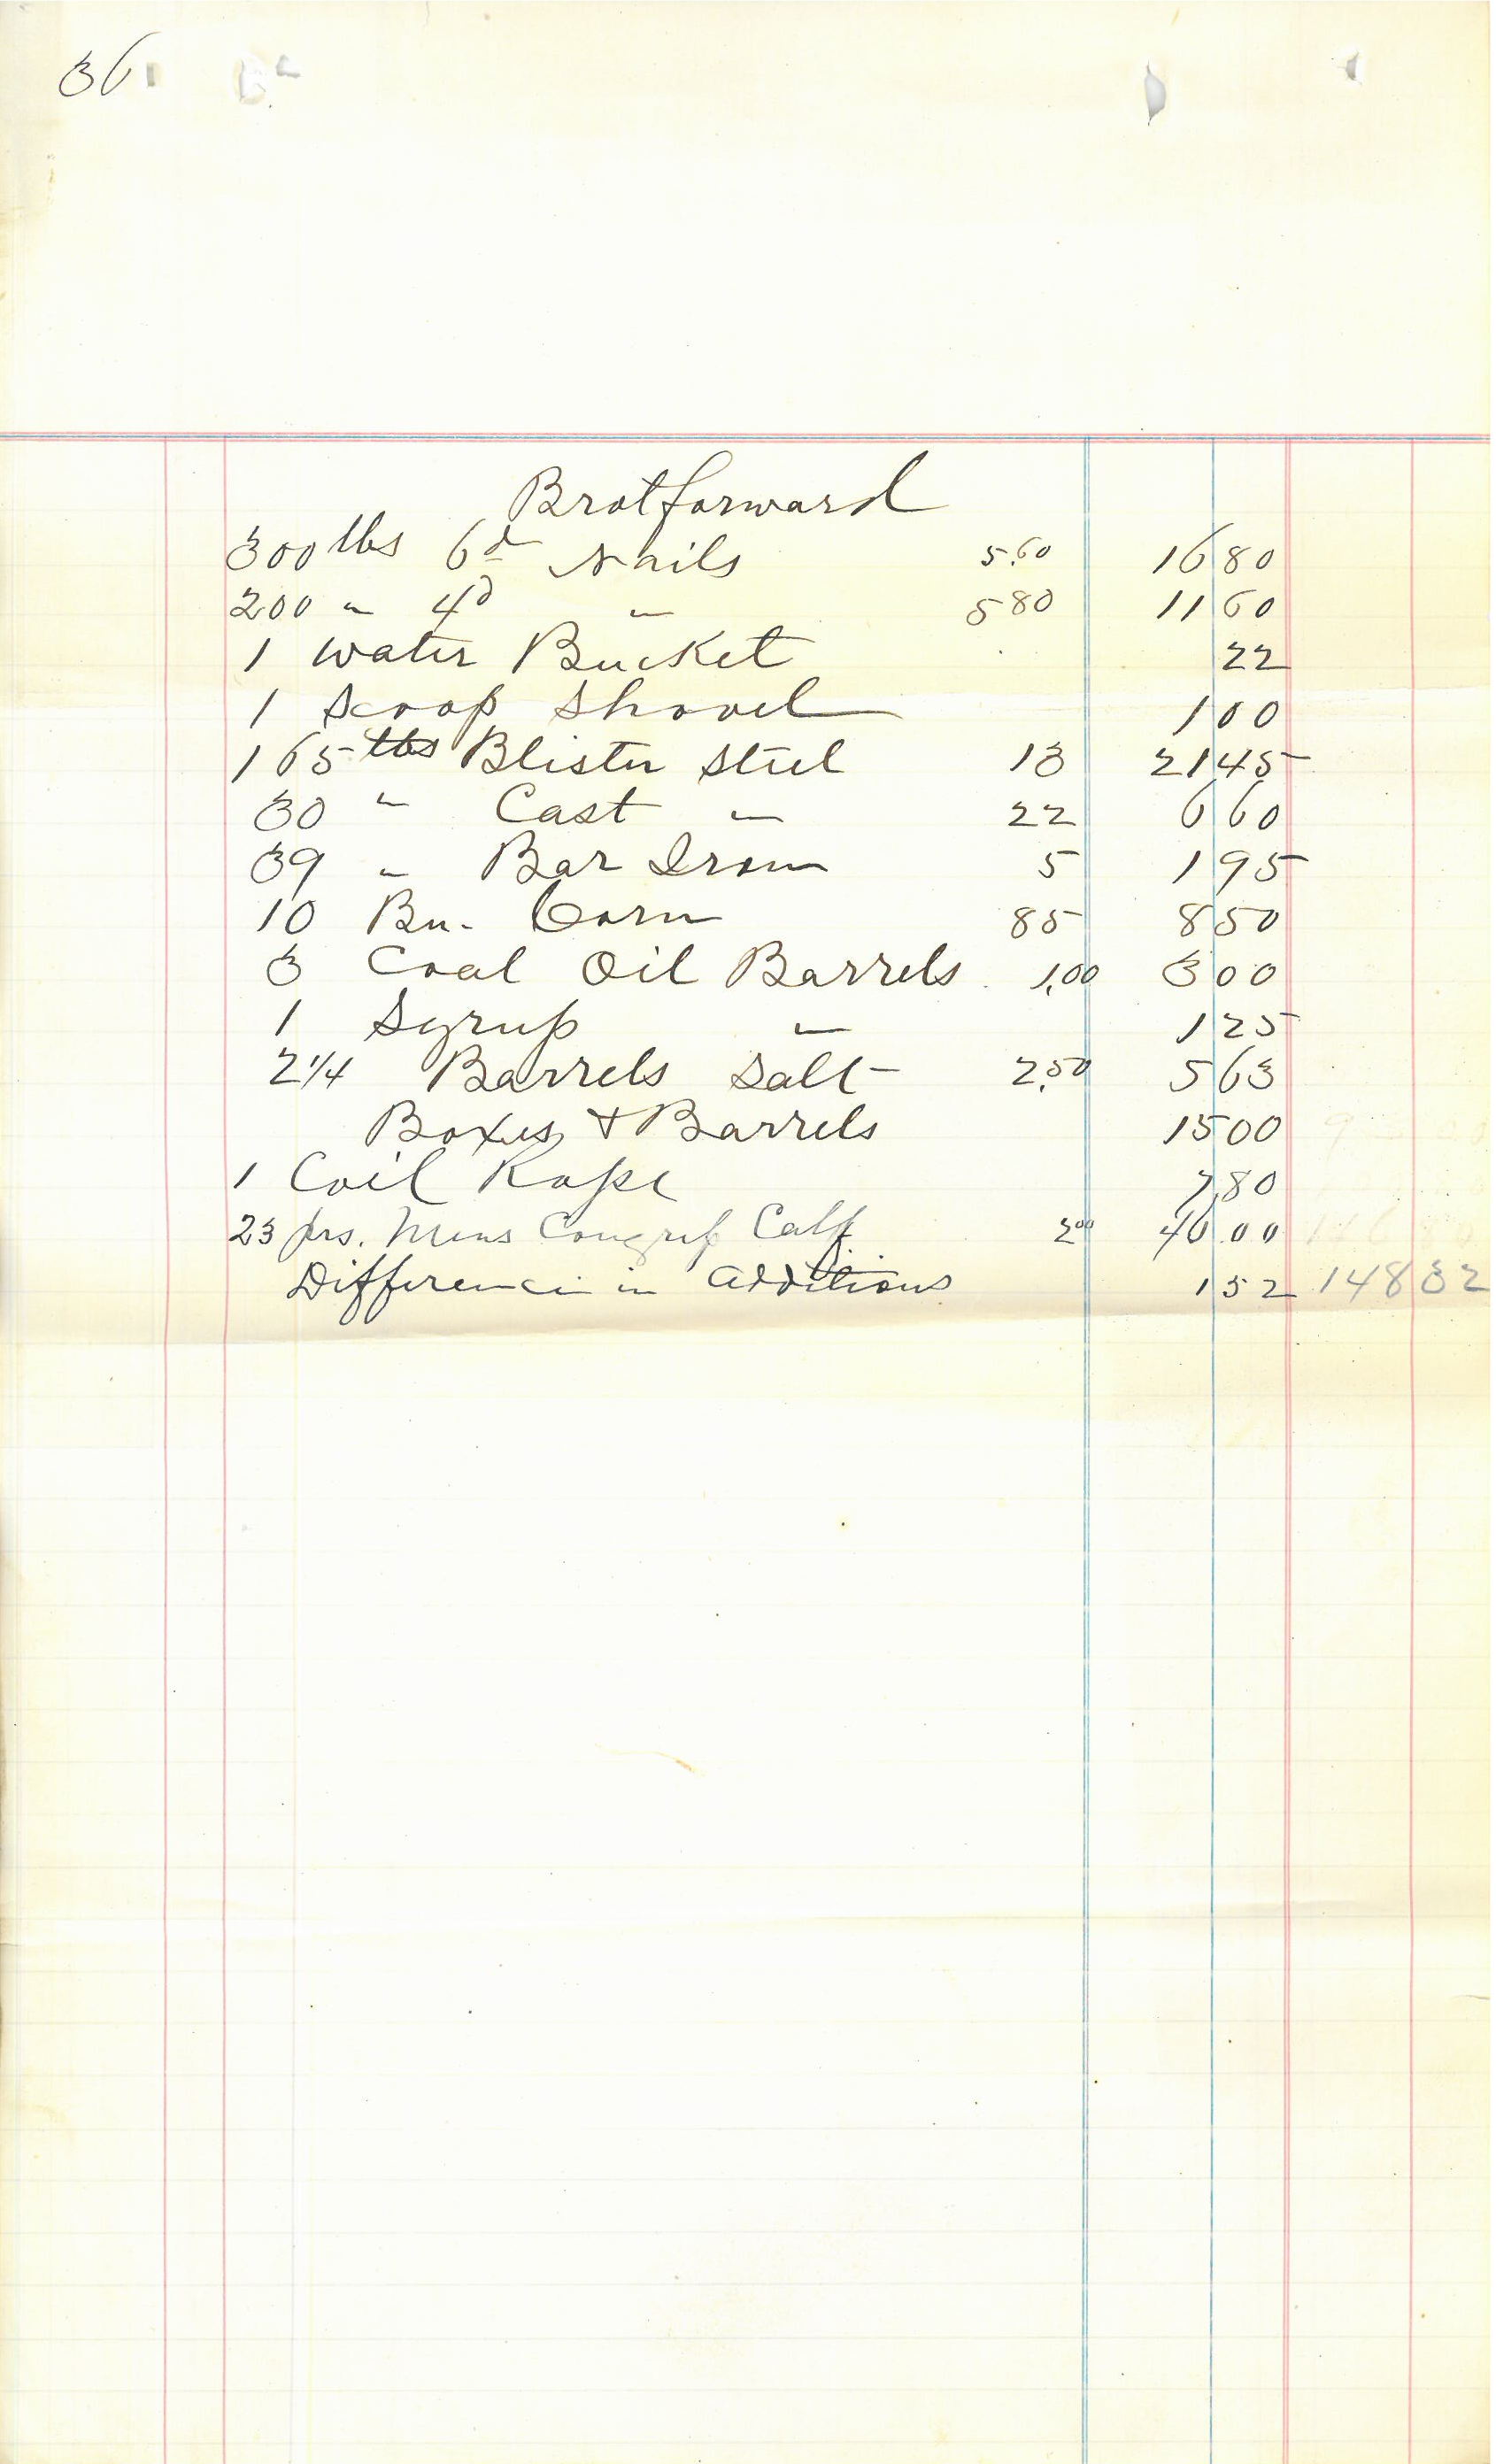 36
Brotforward
300 lbs 6d Nails 5.60 16 80
200 " 4d " 5 80 11 60
1 Water Bucket 22
1 Scoop Shovel 1 00
165 lbs Blister Steel 13 21 45
30 " Cast " 22 6 60
39 " Bar Iron 5 1 95
10 Bu. Corn 85 8 50
3 Coal Oil Barrels 1,00 3 00
1 Syrup " 1 25
2 1/4 Barrels Salt 2,50 5 63
Boxes & Barrels 15 00
1 Coil Rope 7 80
23 prs. Mens Congress Calf 2 00 46 00
Difference in Additions 1 52 148 32